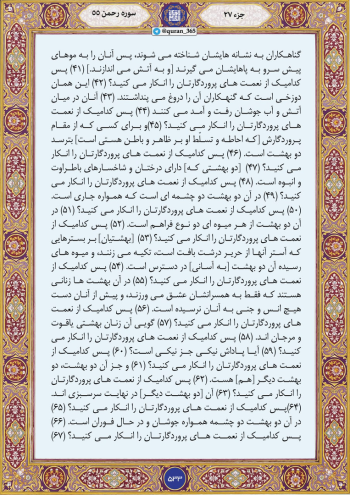 جزء ۲۷
سوره رحمن ۵۵
@quran_365
گناهکاران به نشانه هایشان شناخته می شوند، پس آنان را به موهای
پیش سر و به پاهایشان می گیرند [و به آتش می اندازند.] (۴۱) پس
کدامیک از نعمت های پروردگارتان را انکار می کنید؟ (۴۲) این همان
دوزخی است که گنهکاران آن را دروغ می پنداشتند. (۴۳) آنان در میان
آتش و آب جوشان رفت و آمد می کنند (۴۴) پس کدامیک از نعمت
های پروردگارتان را انکار می کنید؟ (۴۵)و برای کسی که از مقام
پروردگارش [که احاطه و تسلط او بر ظاهر و باطن هستی است] بترسد
دو بهشت است. (۴۶) پس کدامیک از نعمت های پروردگارتان را انکار
می کنید؟ (۴۷) [دو بهشتی که] دارای درختان و شاخسارهای باطراوت
و انبوه است. (۴۸) پس کدامیک از نعمت های پروردگارتان را انکار می
کنید؟ (۴۹) در آن دو بهشت دو چشمه ای است که همواره جاری است.
(۵۰) پس کدامیک از نعمت های پروردگارتان را انکار می کنید؟ (۵۱) در
آن دو بهشت از هر میوه ای دو نوع فراهم است. (۵۲) پس کدامیک از
نعمت های پروردگارتان را انکار می کنید؟ (۵۳) [بهشتیان] بر بسترهایی
که آستر آنها از حریر درشت بافت است، تکیه می زنند، و میوه های
رسیده آن دو بهشت [به آسانی] در دسترس است. (۵۴) پس کدامیک از
نعمت های پروردگارتان را انکار می کنید؟ (۵۵) در آن بهشت ها زنانی
هستند که فقط به همسرانشان عشق می ورزند، و پیش از آنان دست
هیچ انس و جنی به آنان نرسیده است. (۵۶) پس کدامیک از نعمت
های پروردگارتان را انکار می کنید؟ (۵۷) گویی آن زنان بهشتی یاقوت
و مرجان اند. (۵۸) پس کدامیک از نعمت های پروردگارتان را انکار می
کنید؟ (۵۹) آیا پاداش نیکی جز نیکی است؟ (۶۰) پس کدامیک از
نعمت های پروردگارتان را انکار می کنید؟ (۶۱) و جز آن دو بهشت، دو
بهشت دیگر [هم] هست. (۶۲) پس کدامیک از نعمت های پروردگارتان
را انکار می کنید؟ (۶۳) آن [دو بهشت دیگر] در نهایت سرسبزی اند.
(۶۴)پس کدامیک از نعمت های پروردگارتان را انکار می کنید؟ (۶۵)
در آن دو بهشت دو چشمه همواره جوشان و در حال فوران است. (۶۶)
پس کدامیک از نعمت های پروردگارتان را انکار می کنید؟ (۶۷)
۵۳۳